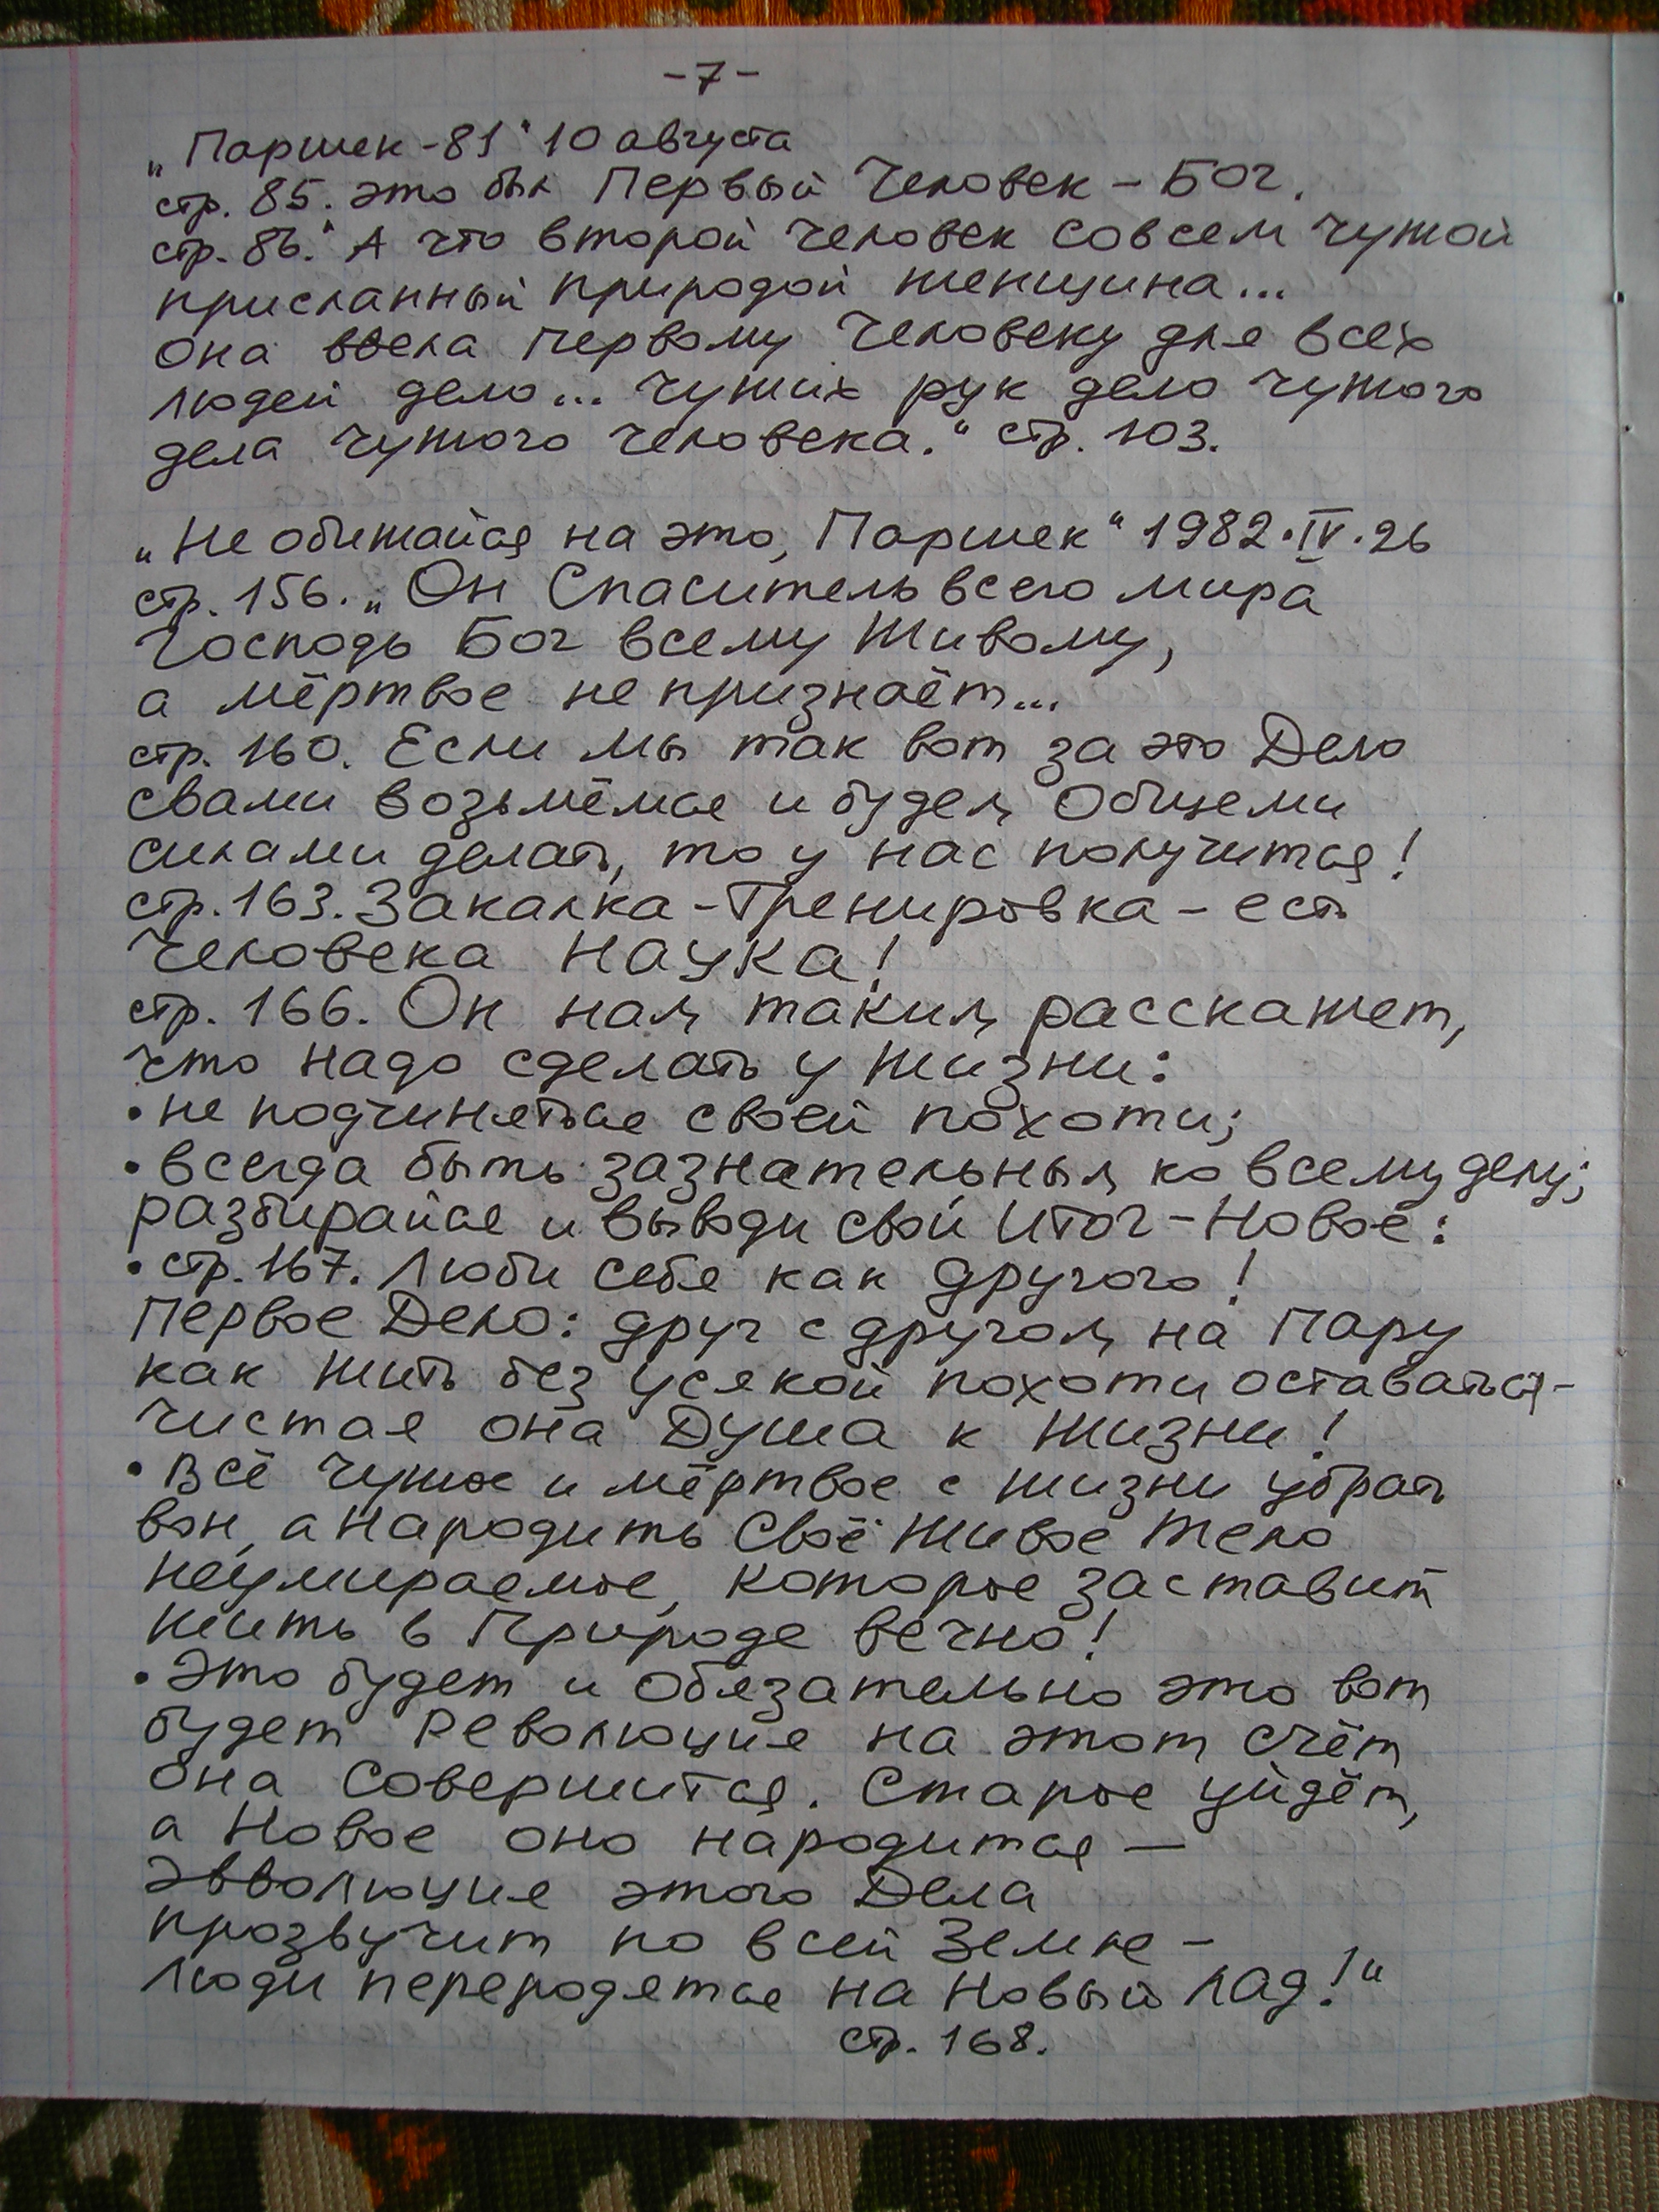 -7-
„Паршек-81" 10 августа
стр. 85. это был Первый Человек - Бог.
стр. 86." А что второй человек совсем чужой
присланный природой женщина...
она ввела первому человеку для всех
людей дело... чужих рук дело чужого
дела чужого человека." стр. 103.
„Не обижайся на это, Паршек" 1982.IV.26
стр. 156. „Он Спаситель всего мира
Господь Бог всему Живому,
а мёртвое не признаёт...
стр. 160. Если мы так вот за это Дело
свами возьмёмся и будем Общеми
силами делать, то у нас получится!
стр. 163. Закалка-Тренировка - есть
Человека Наука!
стр. 166. Он нам таким расскажет,
что надо сделать у жизни:
• не подчиняться своей похоти;
• всегда быть зазнательным ко всему делу;
разбирайся и выводи свой Итог - Новое:
• стр. 167. Люби себя как другого!
Первое Дело: друг с другом на Пару
как жить без усякой похоти оставаться-
чистая она Душа к Жизни!
• Всё чужое и мёртвое с жизни убрать
вон, а Народить Своё Живое Тело
неумираемое, которое заставит
жить в Природе вечно!
• Это будет и Обязательно это вот
будет Революция на этот счёт
она Совершится. Старое уйдёт,
а Новое оно народится —
эвволюция этого Дела
прозвучит по всей Земле -
люди переродятся на Новый лад!"
стр. 168.